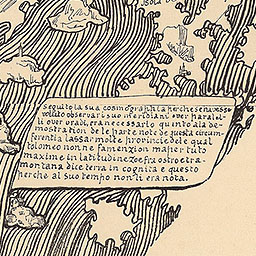 seguito la sua cosmographia perche se havesse
voluto observar i suo meridiani over paralel-
li over gradi, era necessario quinto ala de
mostration de le parte note de questa circum-
ferentia lassar molte provincie de le qual
tolomeo non ne fa menzion ma per tuto
maxime in latitudine zoe fra ostro e tra-
montana dice terra incognita e questo
perche al suo tempo non li era nota.